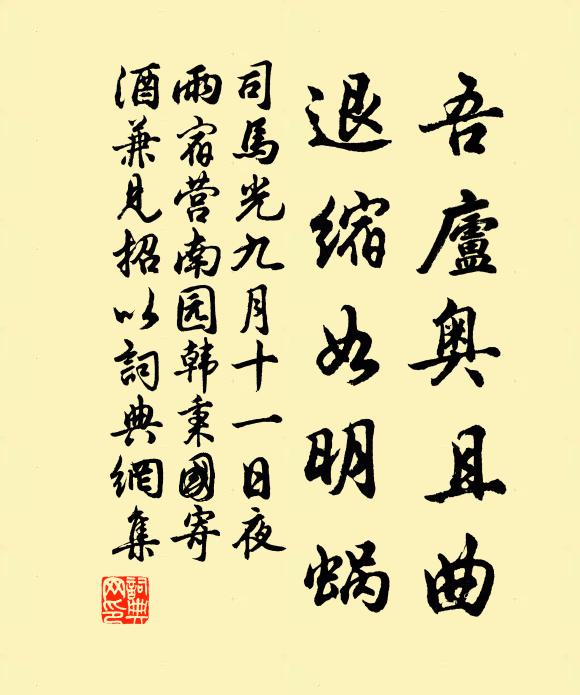 吾廬奥且曲
退缩如明蜗
司馬光九月十一日夜
雨宿营南园韩秉國寄
酒兼見招以詞典網集
詞典
网印